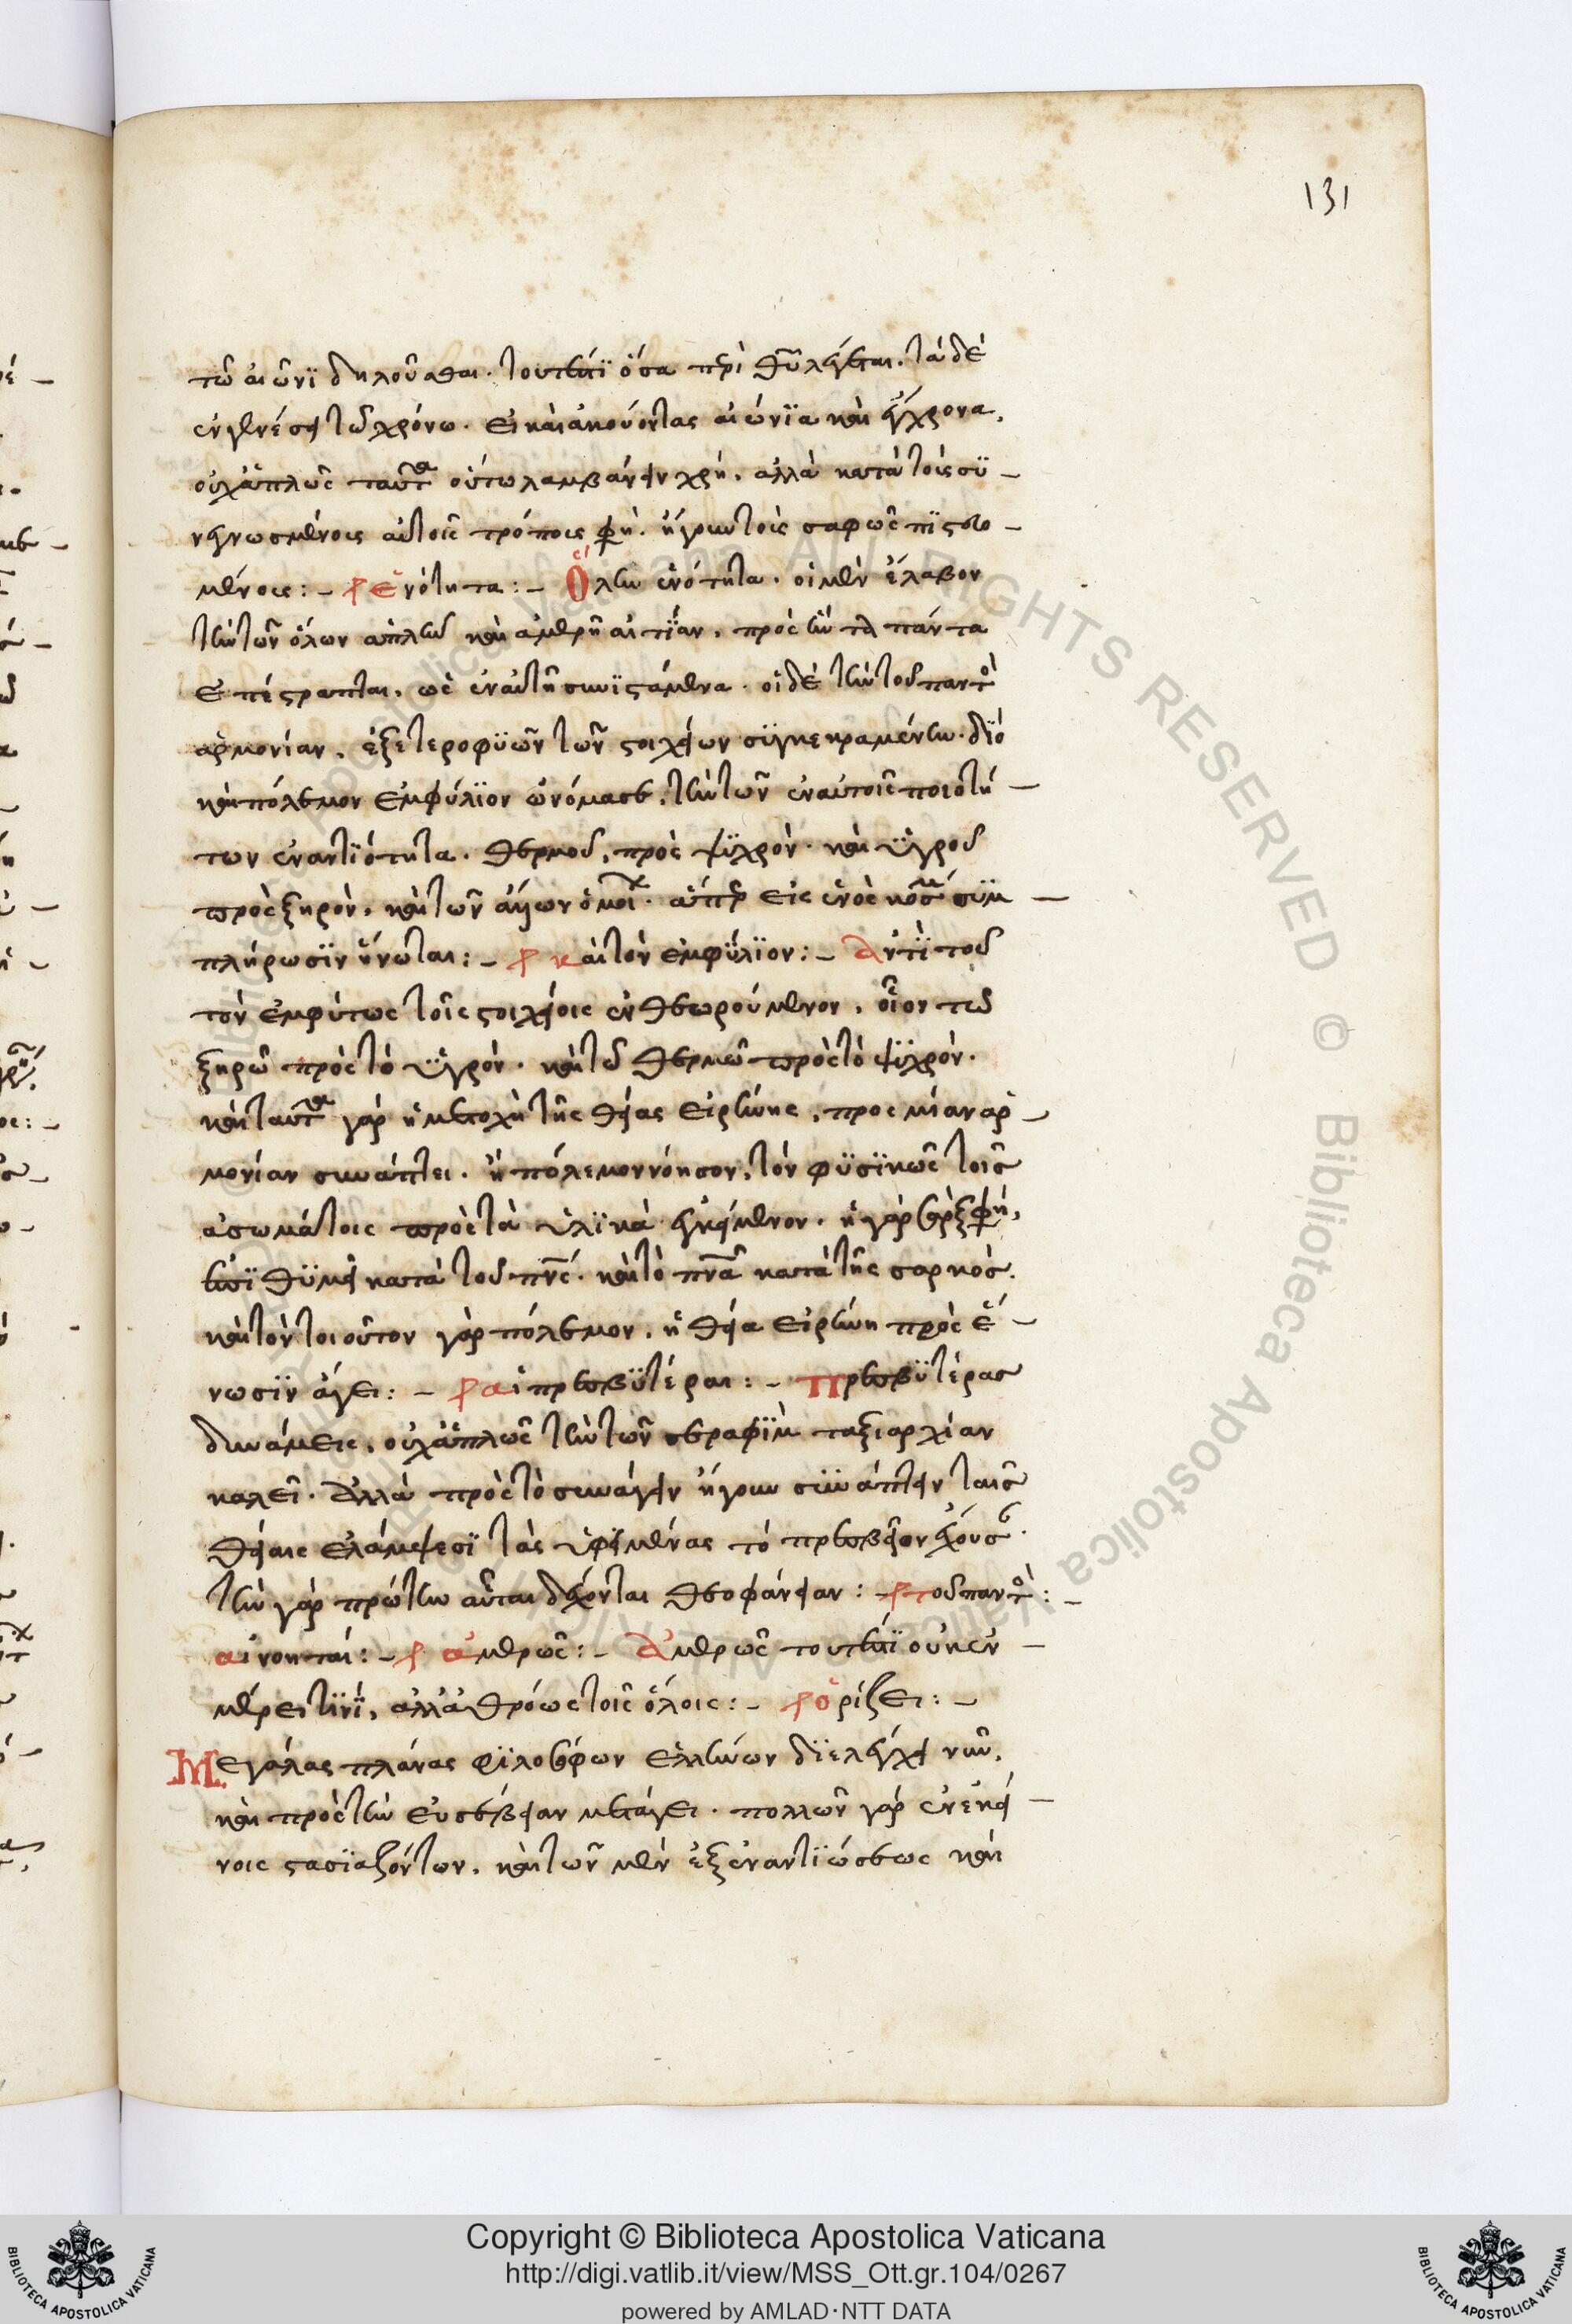 131
τῶ αἰῶνϊ δηλοῦσθαι. τουτέστϊ ὅσα περὶ θῦ λέγεται. τὰ δὲ
ἐν γενέσει τῶ χρόνω. εἰ καὶ ἀκούοντας αἰώνϊα καὶ ἔγχρονα,
οὐχ ἁπλῶς ταῦτα οὕτω λαμβάνειν χρή. ἀλλὰ κατὰ τοὺς σϋ –
νεγνωσμένοις αὐτοῖς τρόποις φη. ἤγουν τοῖς σαφῶς πϊστο –
μένοις: – ἑνότητα: – Ὅλην ἑνότητα. οἱ μὲν ἔλαβον
τὴν τῶν ὅλων ἁπλῆν καὶ ἀμερῆ αἰτΐαν. πρὸς ἣν τὰ πάντα
ἐπέστραπται. ὡς ἐν αὐτῆ συνϊστάμενα. οἱ δὲ τὴν τοῦ παντὸ
ἁρμονίαν. ἐξ ἑτεροφϋῶν τῶν στοιχείων σϋγκεκραμένην. δϊό
καὶ πόλεμον ἐμφύλϊον ὠνόμασε. τὴν τῶν ἐν αὐτοῖς ποιοτή –
των ἐναντϊότητα. θερμοῦ, πρὸς ψϋχρὸν. καὶ ϋγροῦ
πρὸς ξηρὸν. καὶ τῶν ἄλλων ὁμοί. ἅπερ εἰς ἑνὸς κόσμου σϋμ –
πλήρωσϊν ἥνωται: – καὶ τὸν ἐμφύλϊον: – Ἀντΐ τοῦ
τὸν ἐμφύτως τοῖς στοιχείοις ἐνθεωρούμενον. οἷον τῶ
ξηρῶ πρὸς τὸ ϋγρὸν. καὶ τῶ θερμῶ πρὸς τὸ ψϋχρὸν.
καὶ ταῦτα γὰρ ἡ μετοχὴ τῆς θείας εἰρήνης, προς μίαν ἁρ –
μονίαν συνάπτει. ἢ πόλεμον νόησον, τὸν φϋσϊκῶς τοῖς
ἀσωμάτοις πρὸς τὰ ϋλϊκὰ ἐγκείμενον. ἡ γὰρ σὰρξ φη,
ἐπϊθϋμεῖ κατὰ τοῦ πνς. καὶ τὸ πνα κατὰ τῆς σαρκός.
καὶ τὸν τοιοῦτον γὰρ πόλεμον. ἡ θεία εἰρήνη πρὸς ἕ –
νωσϊν ἄγει: – αἱ πρεσβϋτέραι: – Πρεσβϋτέρας
δυνάμεις. οὐχ ἁπλῶς τὴν τῶν σεραφϊμ ταξιαρχίαν
καλεῖ. ἀλλὰ πρὸς τὸ συνάγειν ἤγουν σϋνάπτειν ταῖς
θείαις ἐλάμψεσϊ τὰς ϋφειμένας τὸ πρεσβεῖον ἐχούσας.
τὴν γὰρ πρώτην αὗται δέχονται θεοφάνειαν: τοῦ παντὸ: –
αἱ νοηταί: – ἀμερῶς: – Ἀμερῶς τουτέστϊ οὐκ ἐν –
μέρει τϊνΐ, ἀλλ' ἀθρόως τοῖς ὅλοις: – ὁρίζει: –
Μεγάλας πλάνας φϊλοσόφων ἑλλήνων δϊελέγχει νῦν.
καὶ πρὸς τὴν εὐσέβειαν μετάγει. πολλῶν γὰρ ἐν ἐκεί –
νοις στασϊαζόντων. καὶ τῶν μὲν ἐξ ἐναντϊώσεως καὶ
Copyright © Biblioteca Apostolica Vaticana
http://digi.vatlib.it/view/MSS_Ott.gr.104/0267
powered by AMLAD·NTT DATA